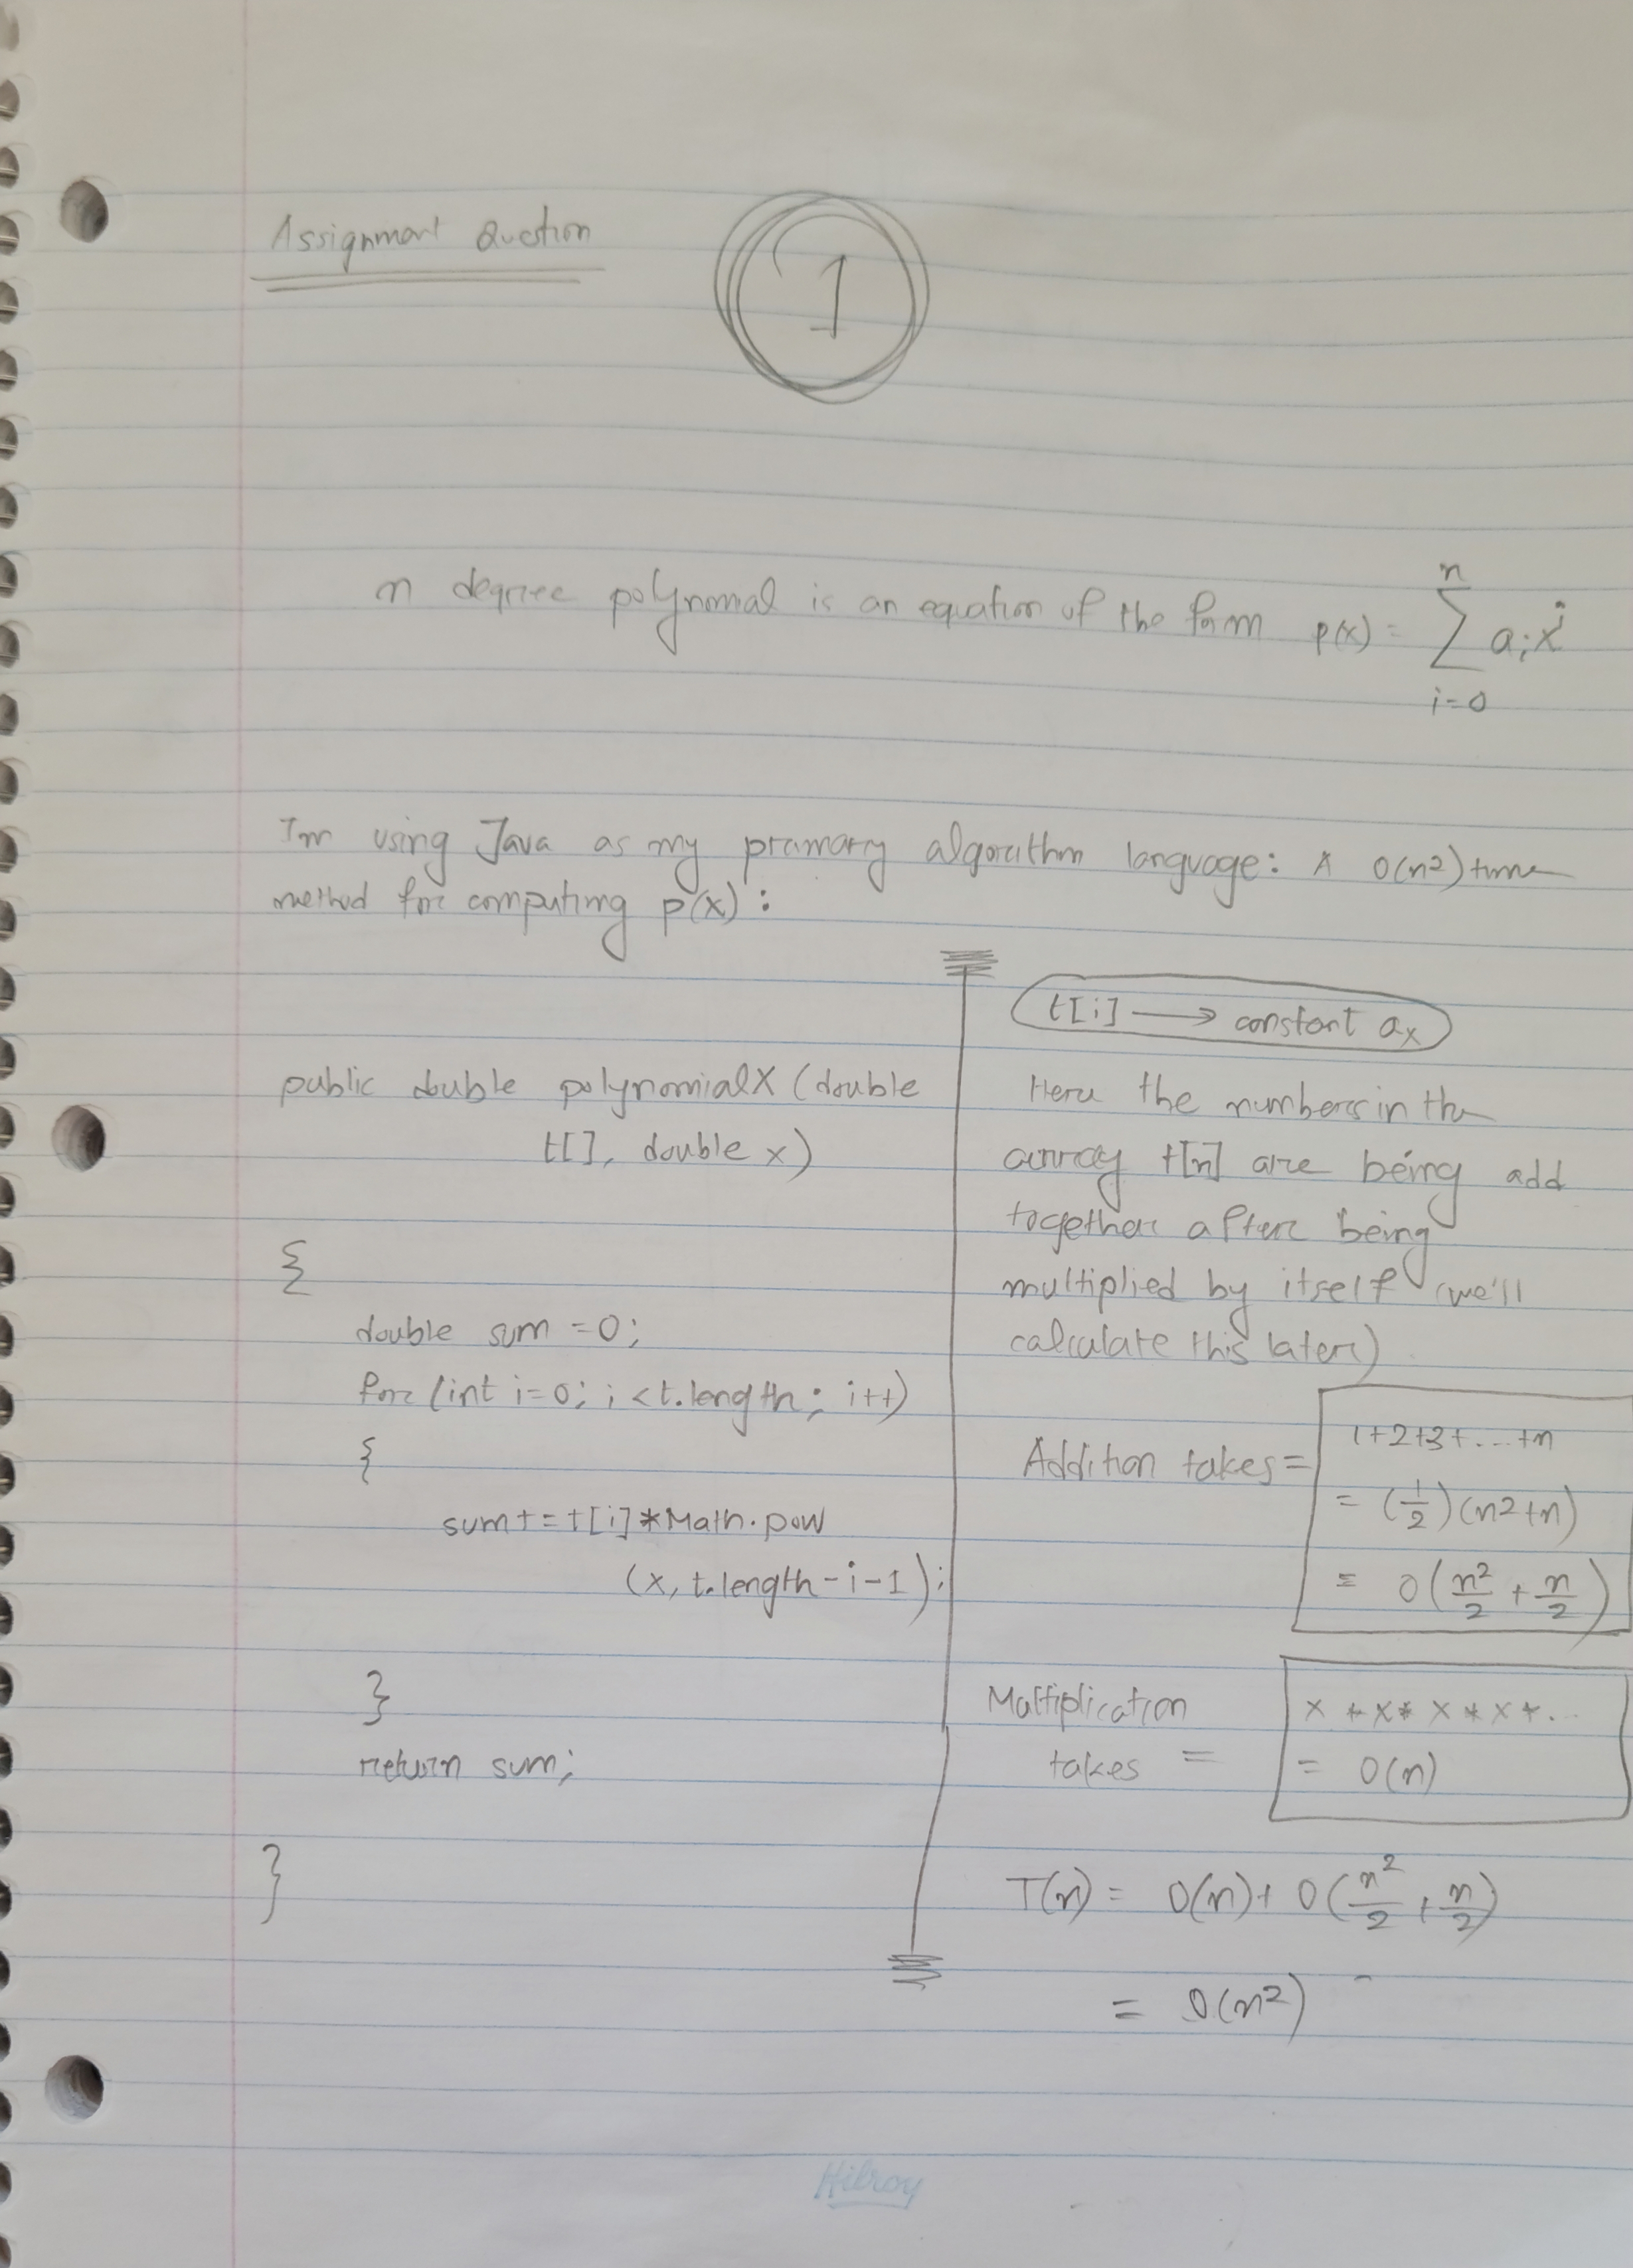 Assignment Question
1
n degree polynomial is an equation of the form p(x) = n ∑ i=0 aᵢxⁱ
Im using Java as my pramary algorithm language: A O(n2) time
method for computing p(x) :
public double polynomialX (double
t[], double x)
{
double sum = 0;
for (int i=0; i < t.length; i++)
{
sum += t[i] * Math.pow
(x, t.length - i - 1);
}
return sum;
}
t[i] → constant aₓ
Here the numbers in the
array t[n] are being add
together after being
multiplied by itself (we'll
calculate this later)
Addition takes =
1+2+3+...+n
= (1/2) (n2+n)
= O(n²/2 + n/2)
Multiplication
takes =
x * x * x * x * ...
= O(n)
T(n) = O(n) + O(n²/2 + n/2)
= O(n2)
Hilroy